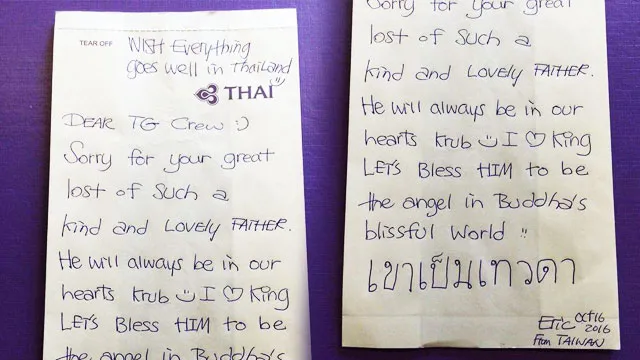 TEAR OFF
WISH Everything
goes well in Thailand
THAI
DEAR TG Crew :)
Sorry for your great
lost of Such a
kind and Lovely FATHER.
He will always be in our
hearts krub I ♡ King
LET's Bless HIM to be
the angel in Buddha's
Sorry for your great
lost of Such a
kind and Lovely FATHER.
He will always be in our
hearts krub I ♡ King
LET's Bless HIM to be
the angel in Buddha's
blissful World
เขาเป็นเทวดา
Eric Oct 16
2016
From TAIWAN